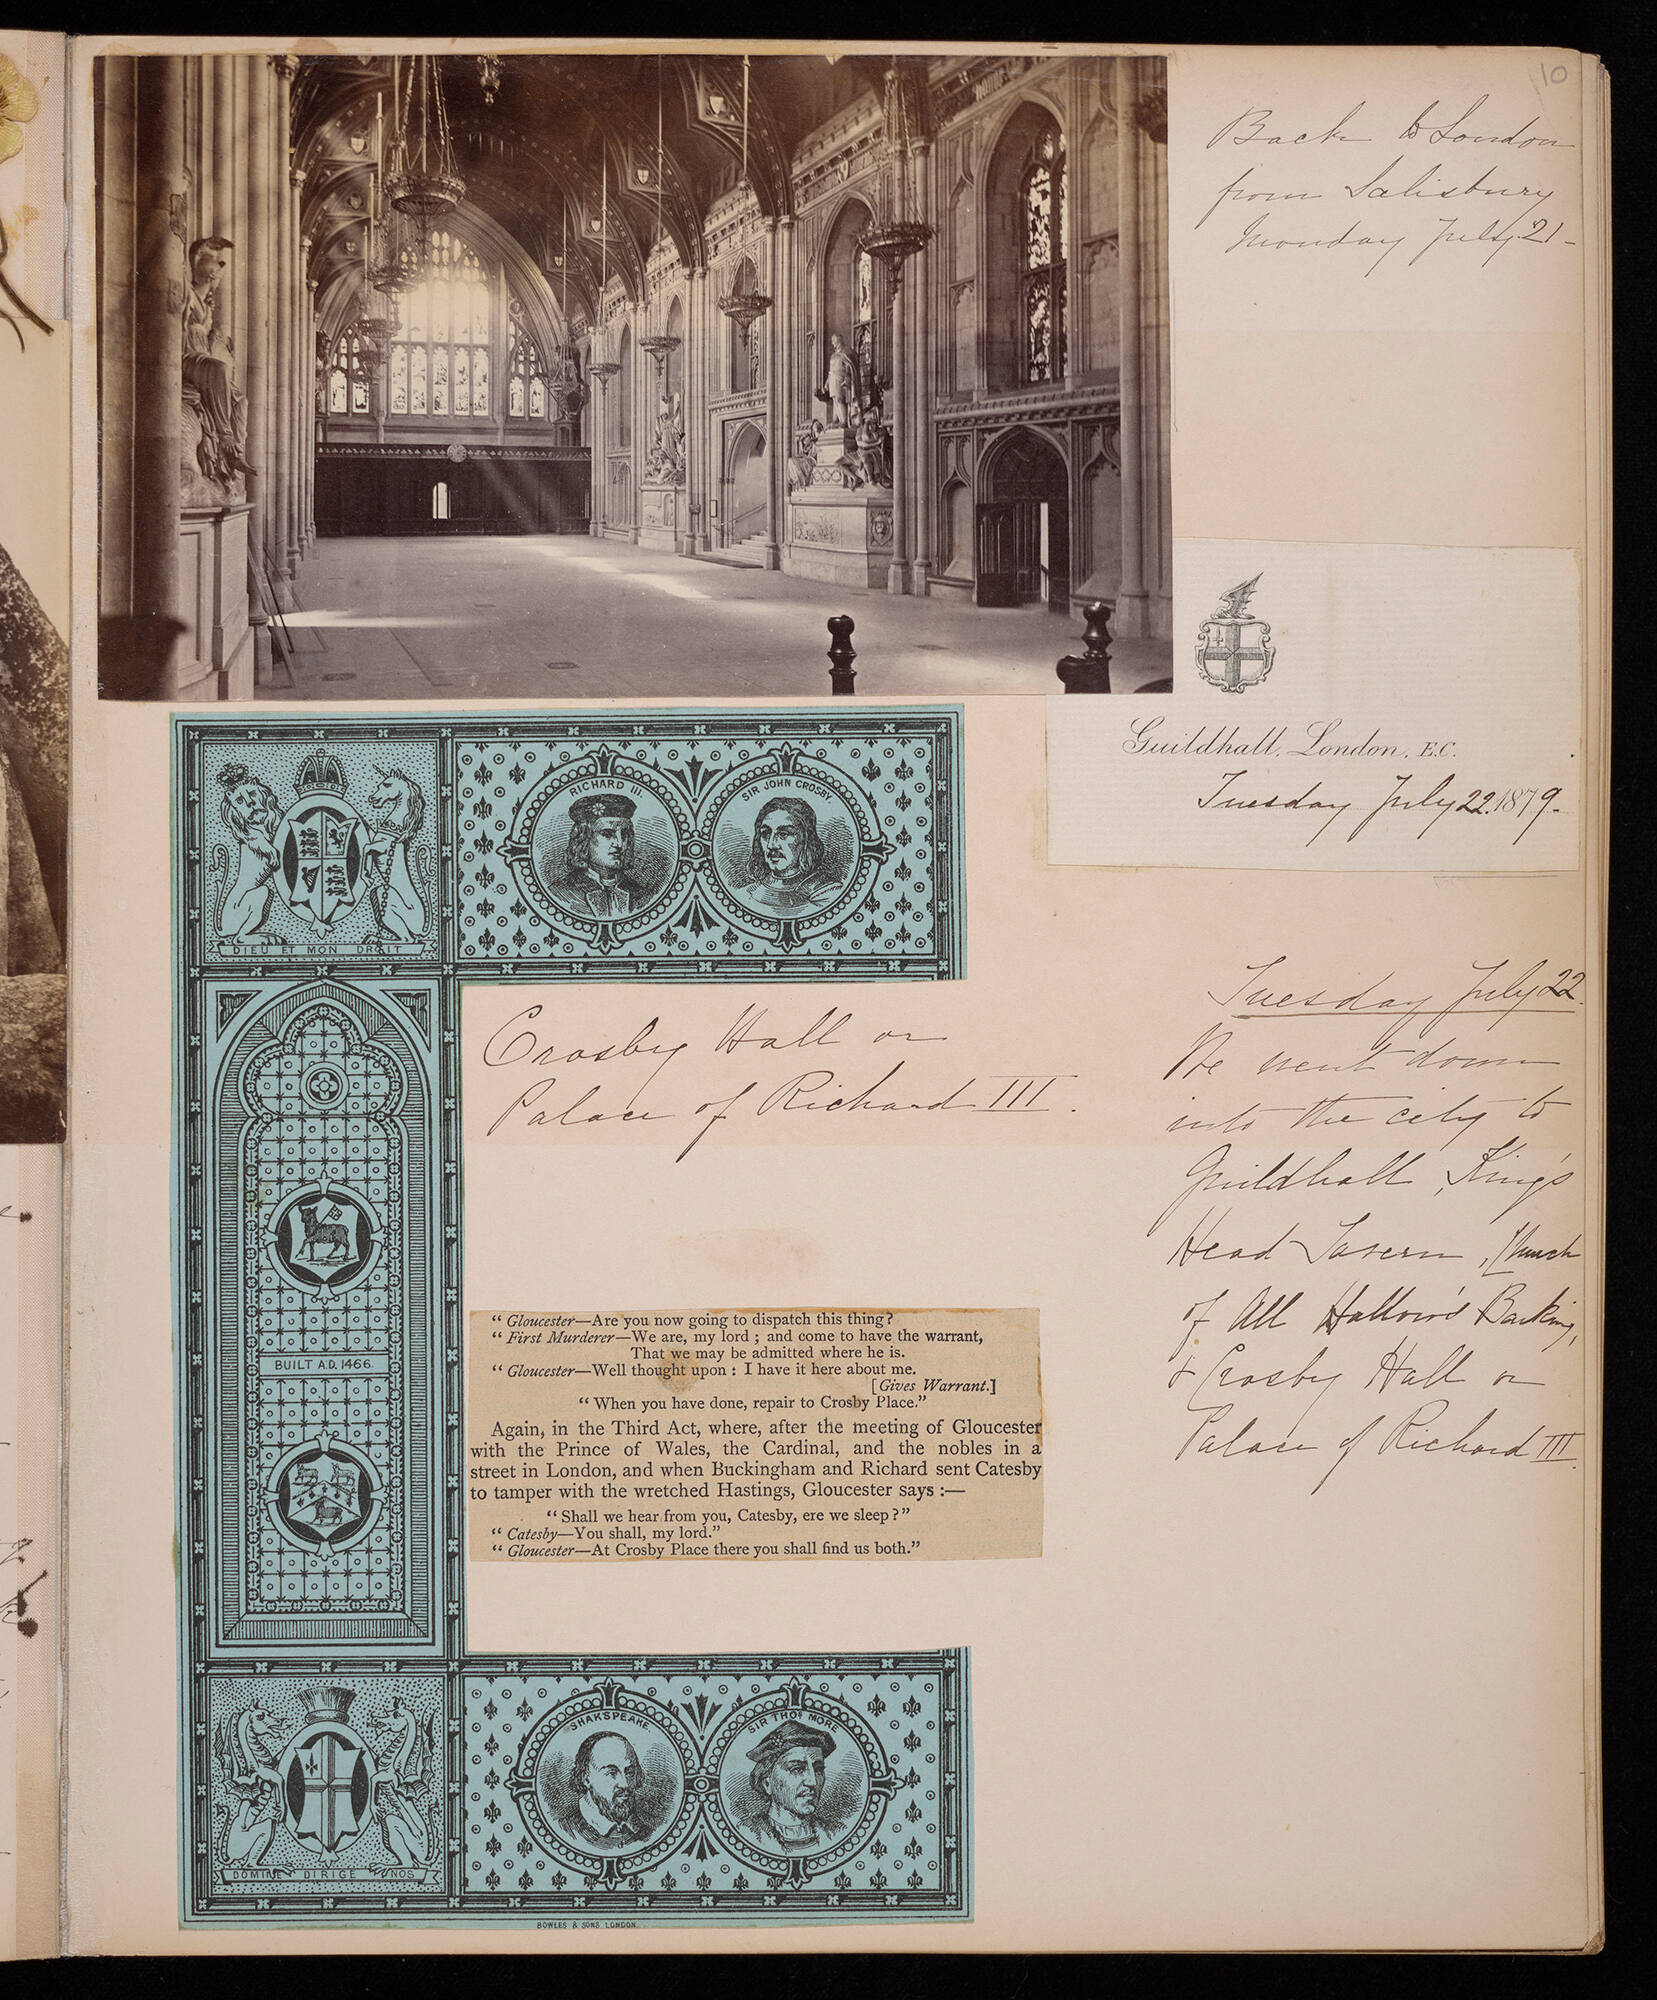 10
Back to London
from Salisbury
Monday July 21-
Guildhall, London, E.C.
Tuesday July 22. 1879.
DIEU ET MON DROIT
RICHARD III.
SIR JOHN CROSBY.
Crosby Hall or
Palace of Richard III.
BUILT A.D. 1466.
“ Gloucester—Are you now going to dispatch this thing?
“ First Murderer—We are, my lord ; and come to have the warrant,
That we may be admitted where he is.
“ Gloucester—Well thought upon : I have it here about me.
[Gives Warrant.]
“ When you have done, repair to Crosby Place.”
Again, in the Third Act, where, after the meeting of Gloucester
with the Prince of Wales, the Cardinal, and the nobles in a
street in London, and when Buckingham and Richard sent Catesby
to tamper with the wretched Hastings, Gloucester says :—
“ Shall we hear from you, Catesby, ere we sleep ?”
“ Catesby—You shall, my lord.”
“ Gloucester—At Crosby Place there you shall find us both.”
SHAKSPEARE.
SIR THOS. MORE
DOMINE DIRIGE NOS
BOWLES & SONS LONDON
Tuesday July 22.
We went down
into the city to
Guildhall, King's
Head Tavern, Church
of All Hallow's Barking,
& Crosby Hall or
Palace of Richard III.